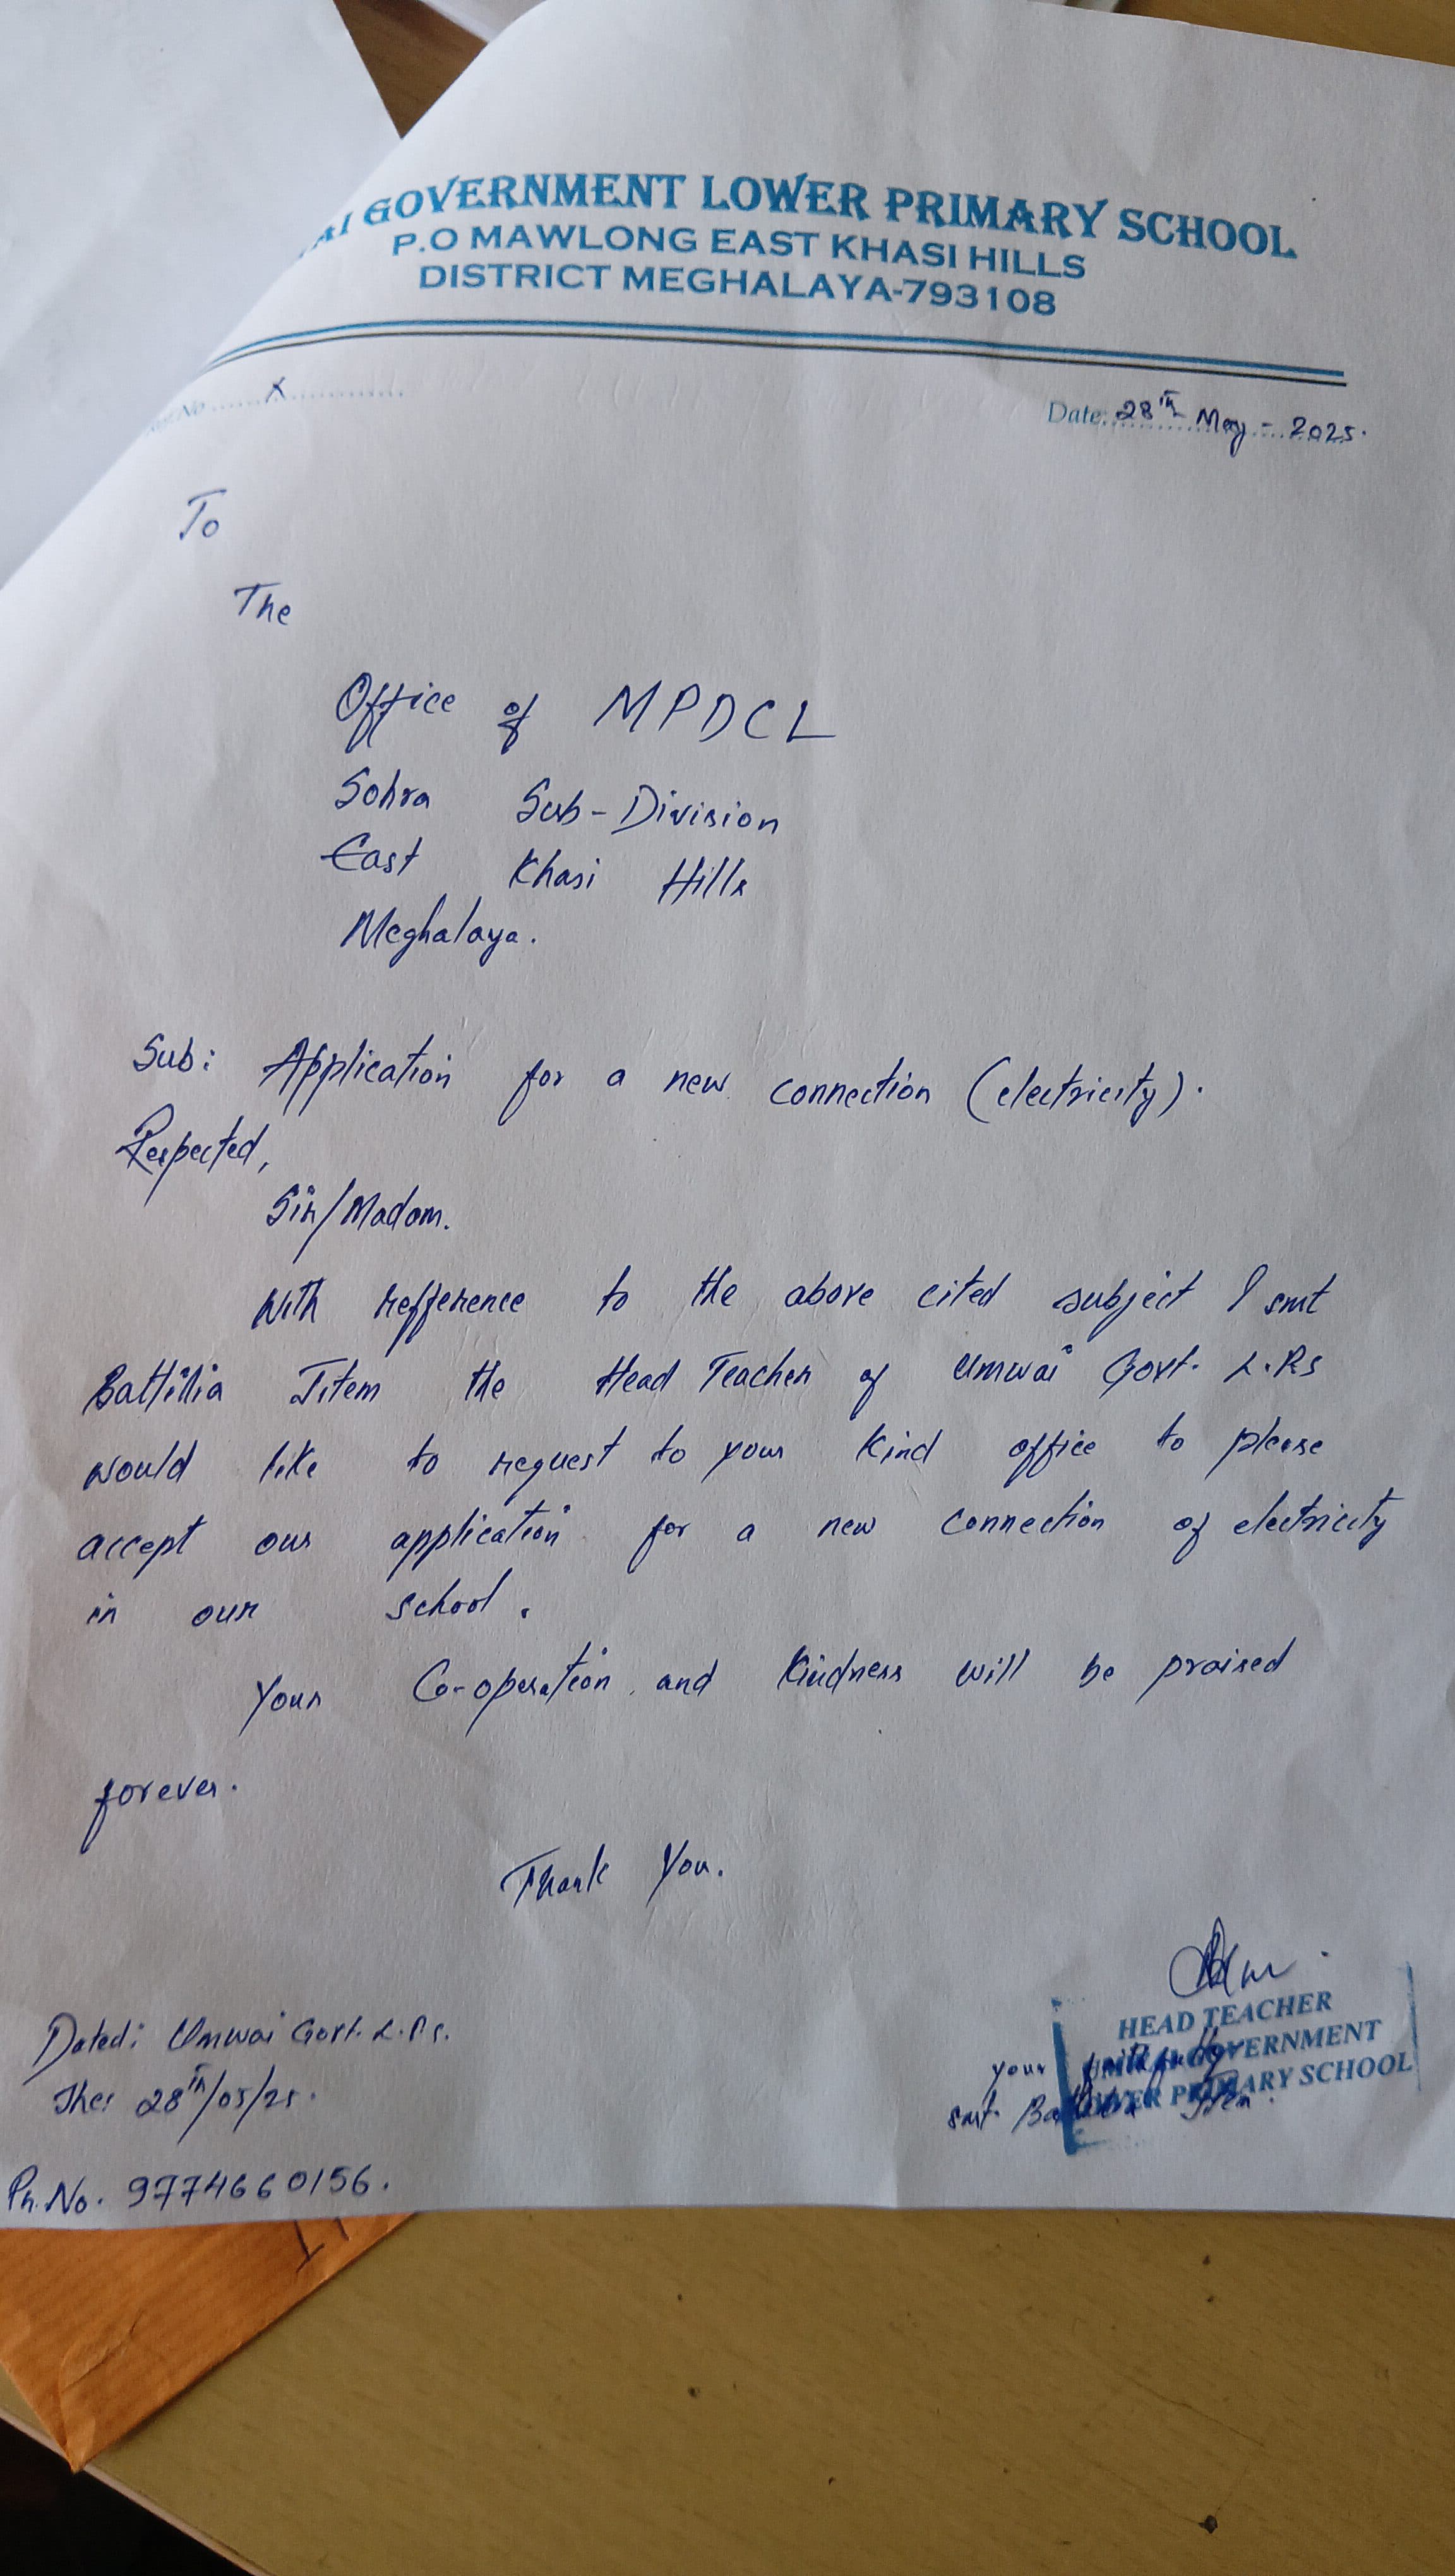 AI GOVERNMENT LOWER PRIMARY SCHOOL
P.O MAWLONG EAST KHASI HILLS
DISTRICT MEGHALAYA-793108
No ........X........
Date: 28th May - 2025.
To
The
Office of MPDCL
Sohra Sub-Division
East Khasi Hills
Meghalaya.
Sub: Application for a new connection (electricity).
Respected,
Sir/Madam.
With refference to the above cited subject I smt
Battilia Jitem the Head Teacher of Umwai Govt. L.P.S
would like to request to your kind office to please
accept our application for a new connection of electricity
in our school.
Your Co-operation and Kindness will be praised
forever.
Thank You.
HEAD TEACHER
GOVERNMENT
LOWER PRIMARY SCHOOL
your faithfully
smt.
Dated: Umwai Govt. L.P.S.
The: 28th/05/25.
Ph. No. 9774660156.